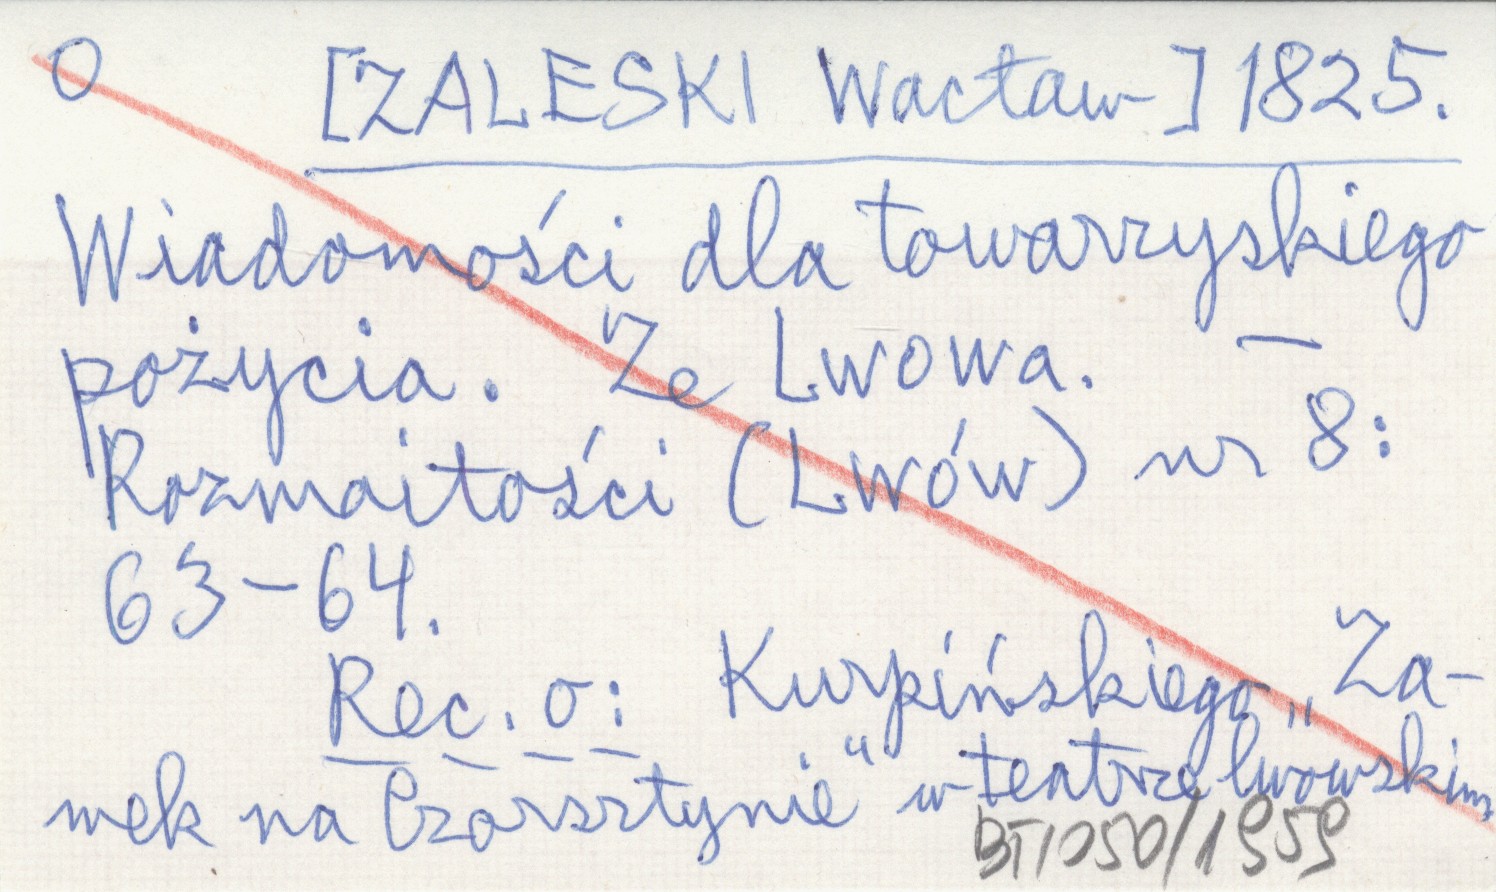 O [ZALESKI Wacław] 1825.
Wiadomości dla towarzyskiego
pożycia. Ze Lwowa. —
Rozmaitości (Lwów) nr 8:
63-64.
Rec. o: Kurpińskiego „Za-
mek na Czorsztynie" w teatrze lwowskim
BT/050/1959